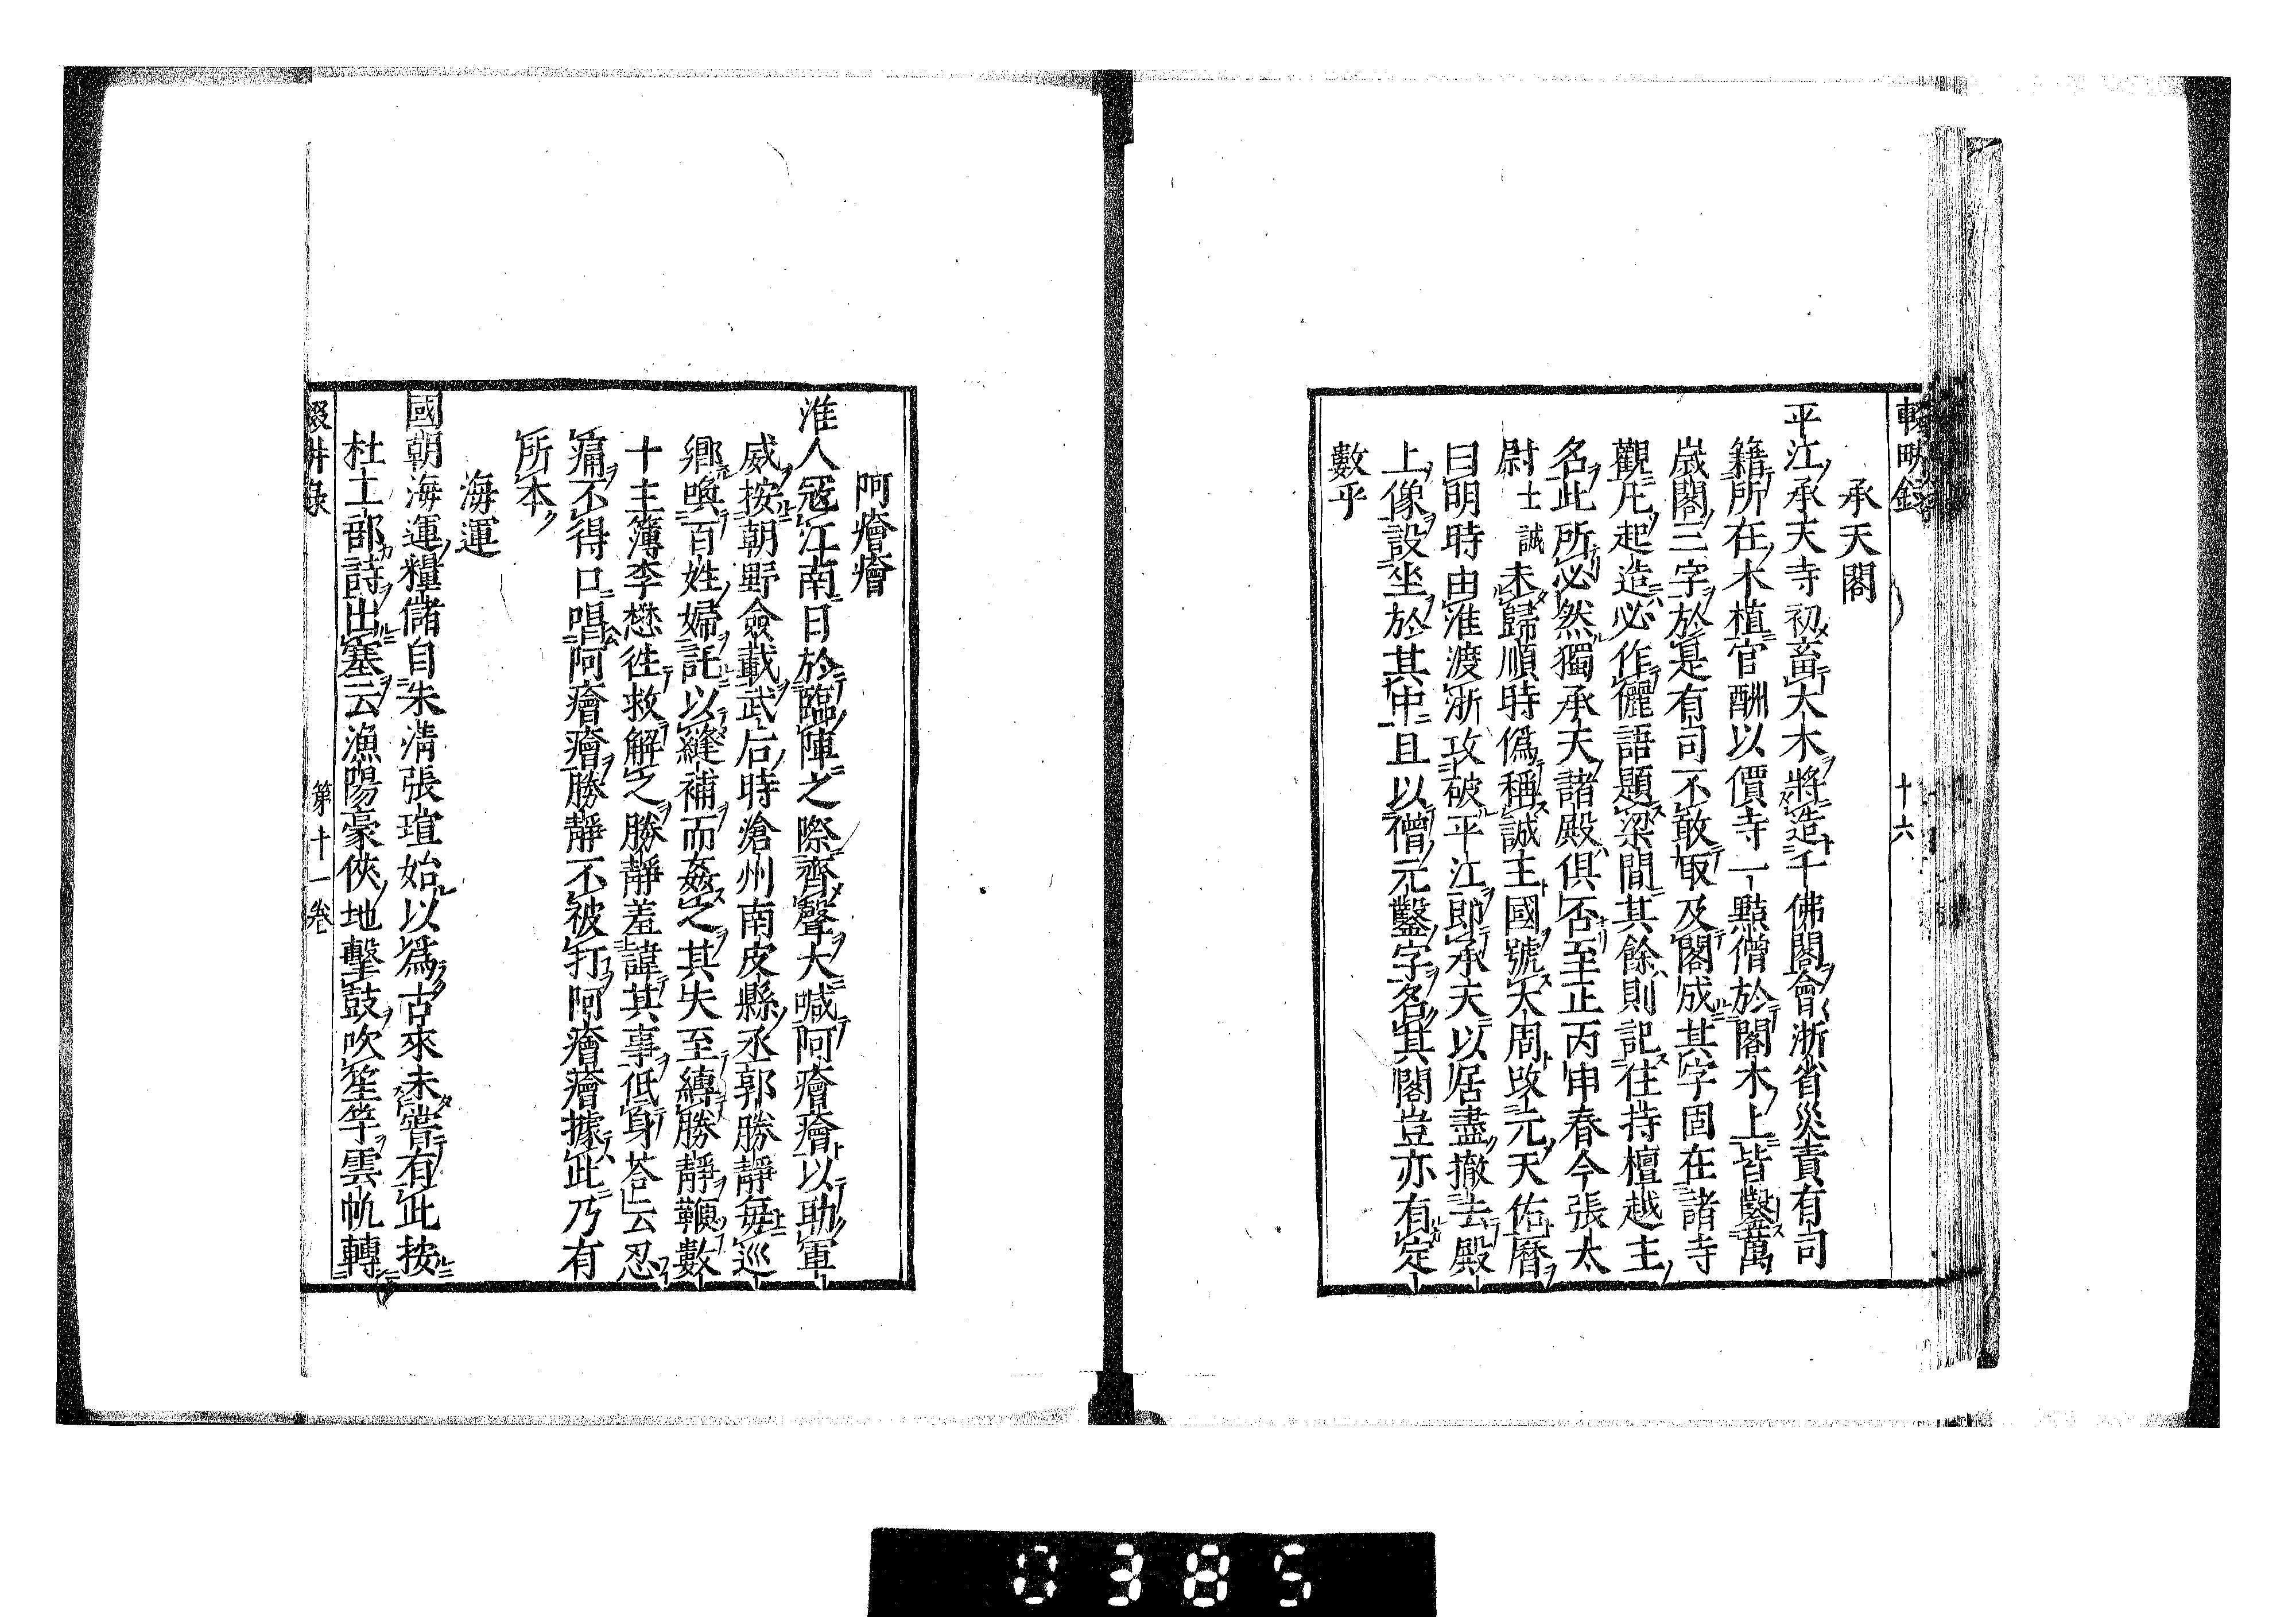 輟畊錄 十六
承天閣
平江承天寺初畜大木將造千佛閣會浙省災責有司
籍所在木植官酬以價寺一點僧於閣木上皆鑿萬
歲閣三字於是有司不敢取及閣成其字固在諸寺
觀凡起造必作儷語題梁間其餘則記住持檀越主
名此所必然獨承天諸殿俱否至正丙申春今張太
尉士誠未歸順時僞稱誠王國號大周改元天佑曆
曰明時由淮渡浙攻破平江即承天以居盡撤去殿
上像設坐於其中且以僧元鑿字名其閣豈亦有定
數乎
阿㿊㿊
淮人冦江南日於臨陣之際齊聲大喊阿㿊㿊以助軍
威按朝野僉載武后時滄州南皮縣丞郭勝靜每巡
鄉喚百姓婦託以縫補而姦之其夫至縛勝靜鞭數
十主簿李懋徃救解之勝靜羞諱其事低身荅云忍
痛不得口唱阿㿊㿊勝靜不被打阿㿊㿊據此乃有
所本
海運
國朝海運糧儲自朱淸張瑄始以爲古來未嘗有此按
杜工部詩出塞云漁陽豪俠地擊鼓吹笙竽雲帆轉
輟畊錄 第十一卷
0385